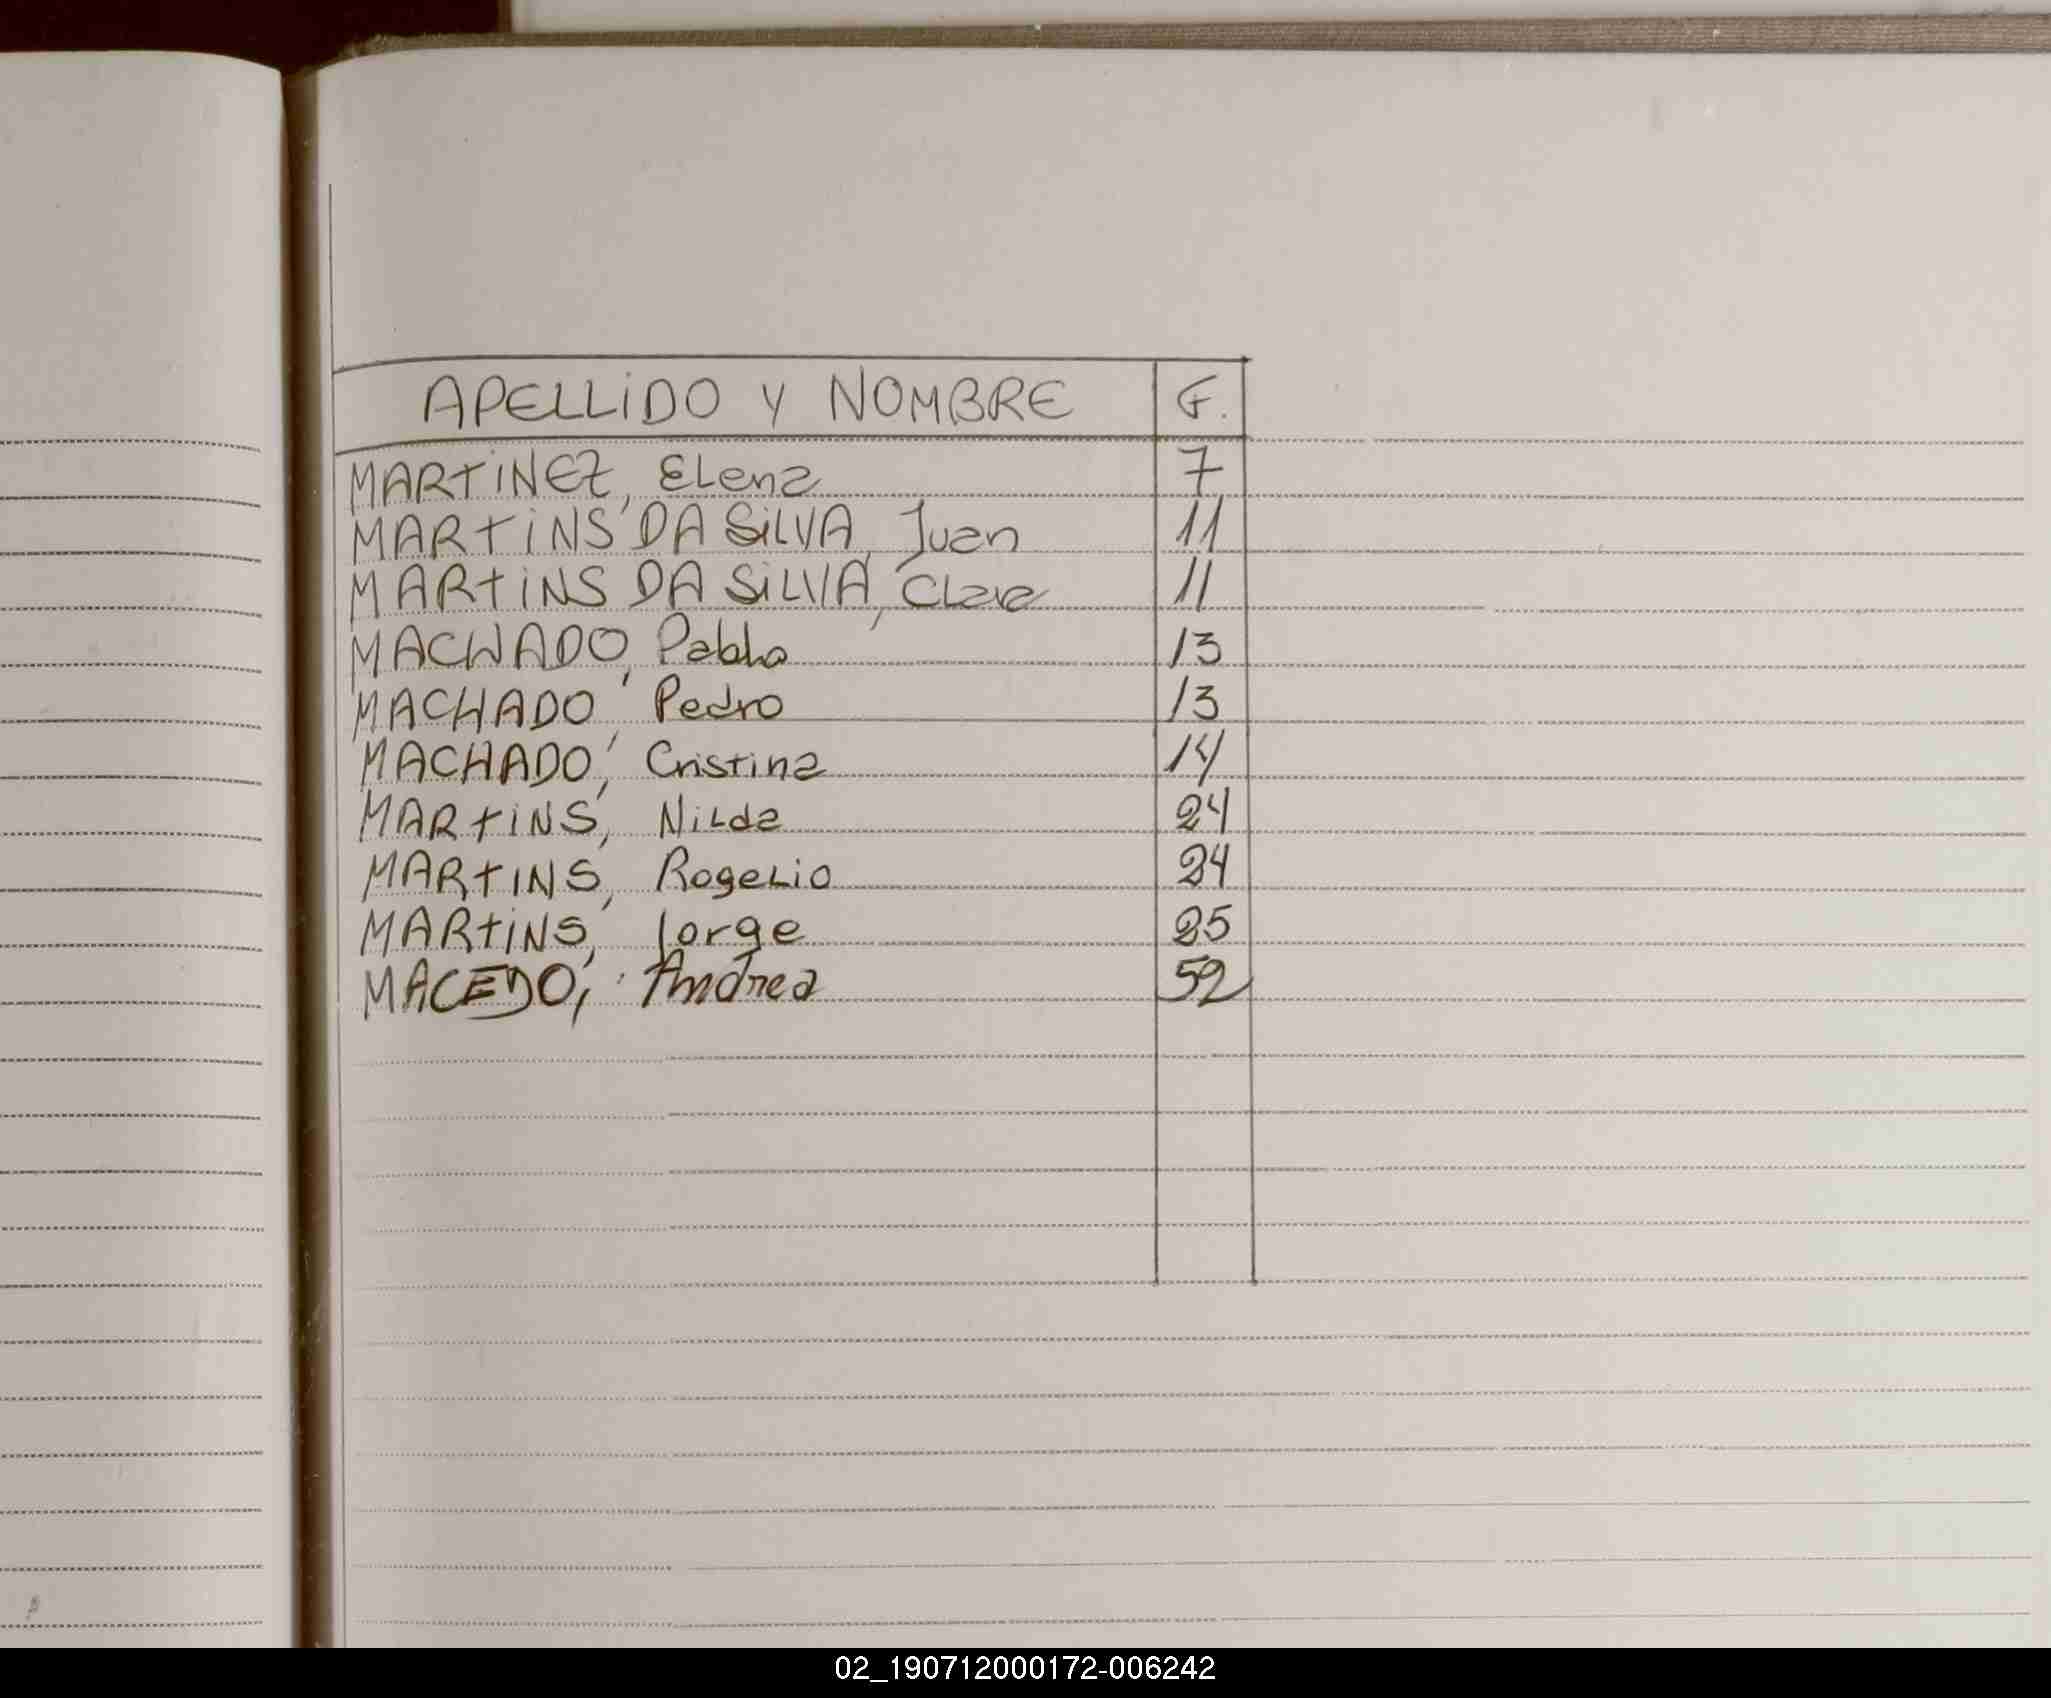 APELLiDO Y NOMBRE F.
MARTiNEZ, ELena 7
MARTiNS DA SiLVA, Juan 11
MARTiNS DA SiLVA, CLara 11
MACHADO, Pablo 13
MACHADO, Pedro 13
MACHADO, Cristina 14
MARTiNS, NiLda 24
MARTINS, RogeLio 24
MARTiNS, Jorge 25
MACEDO, Andrea 52
02_190712000172-006242